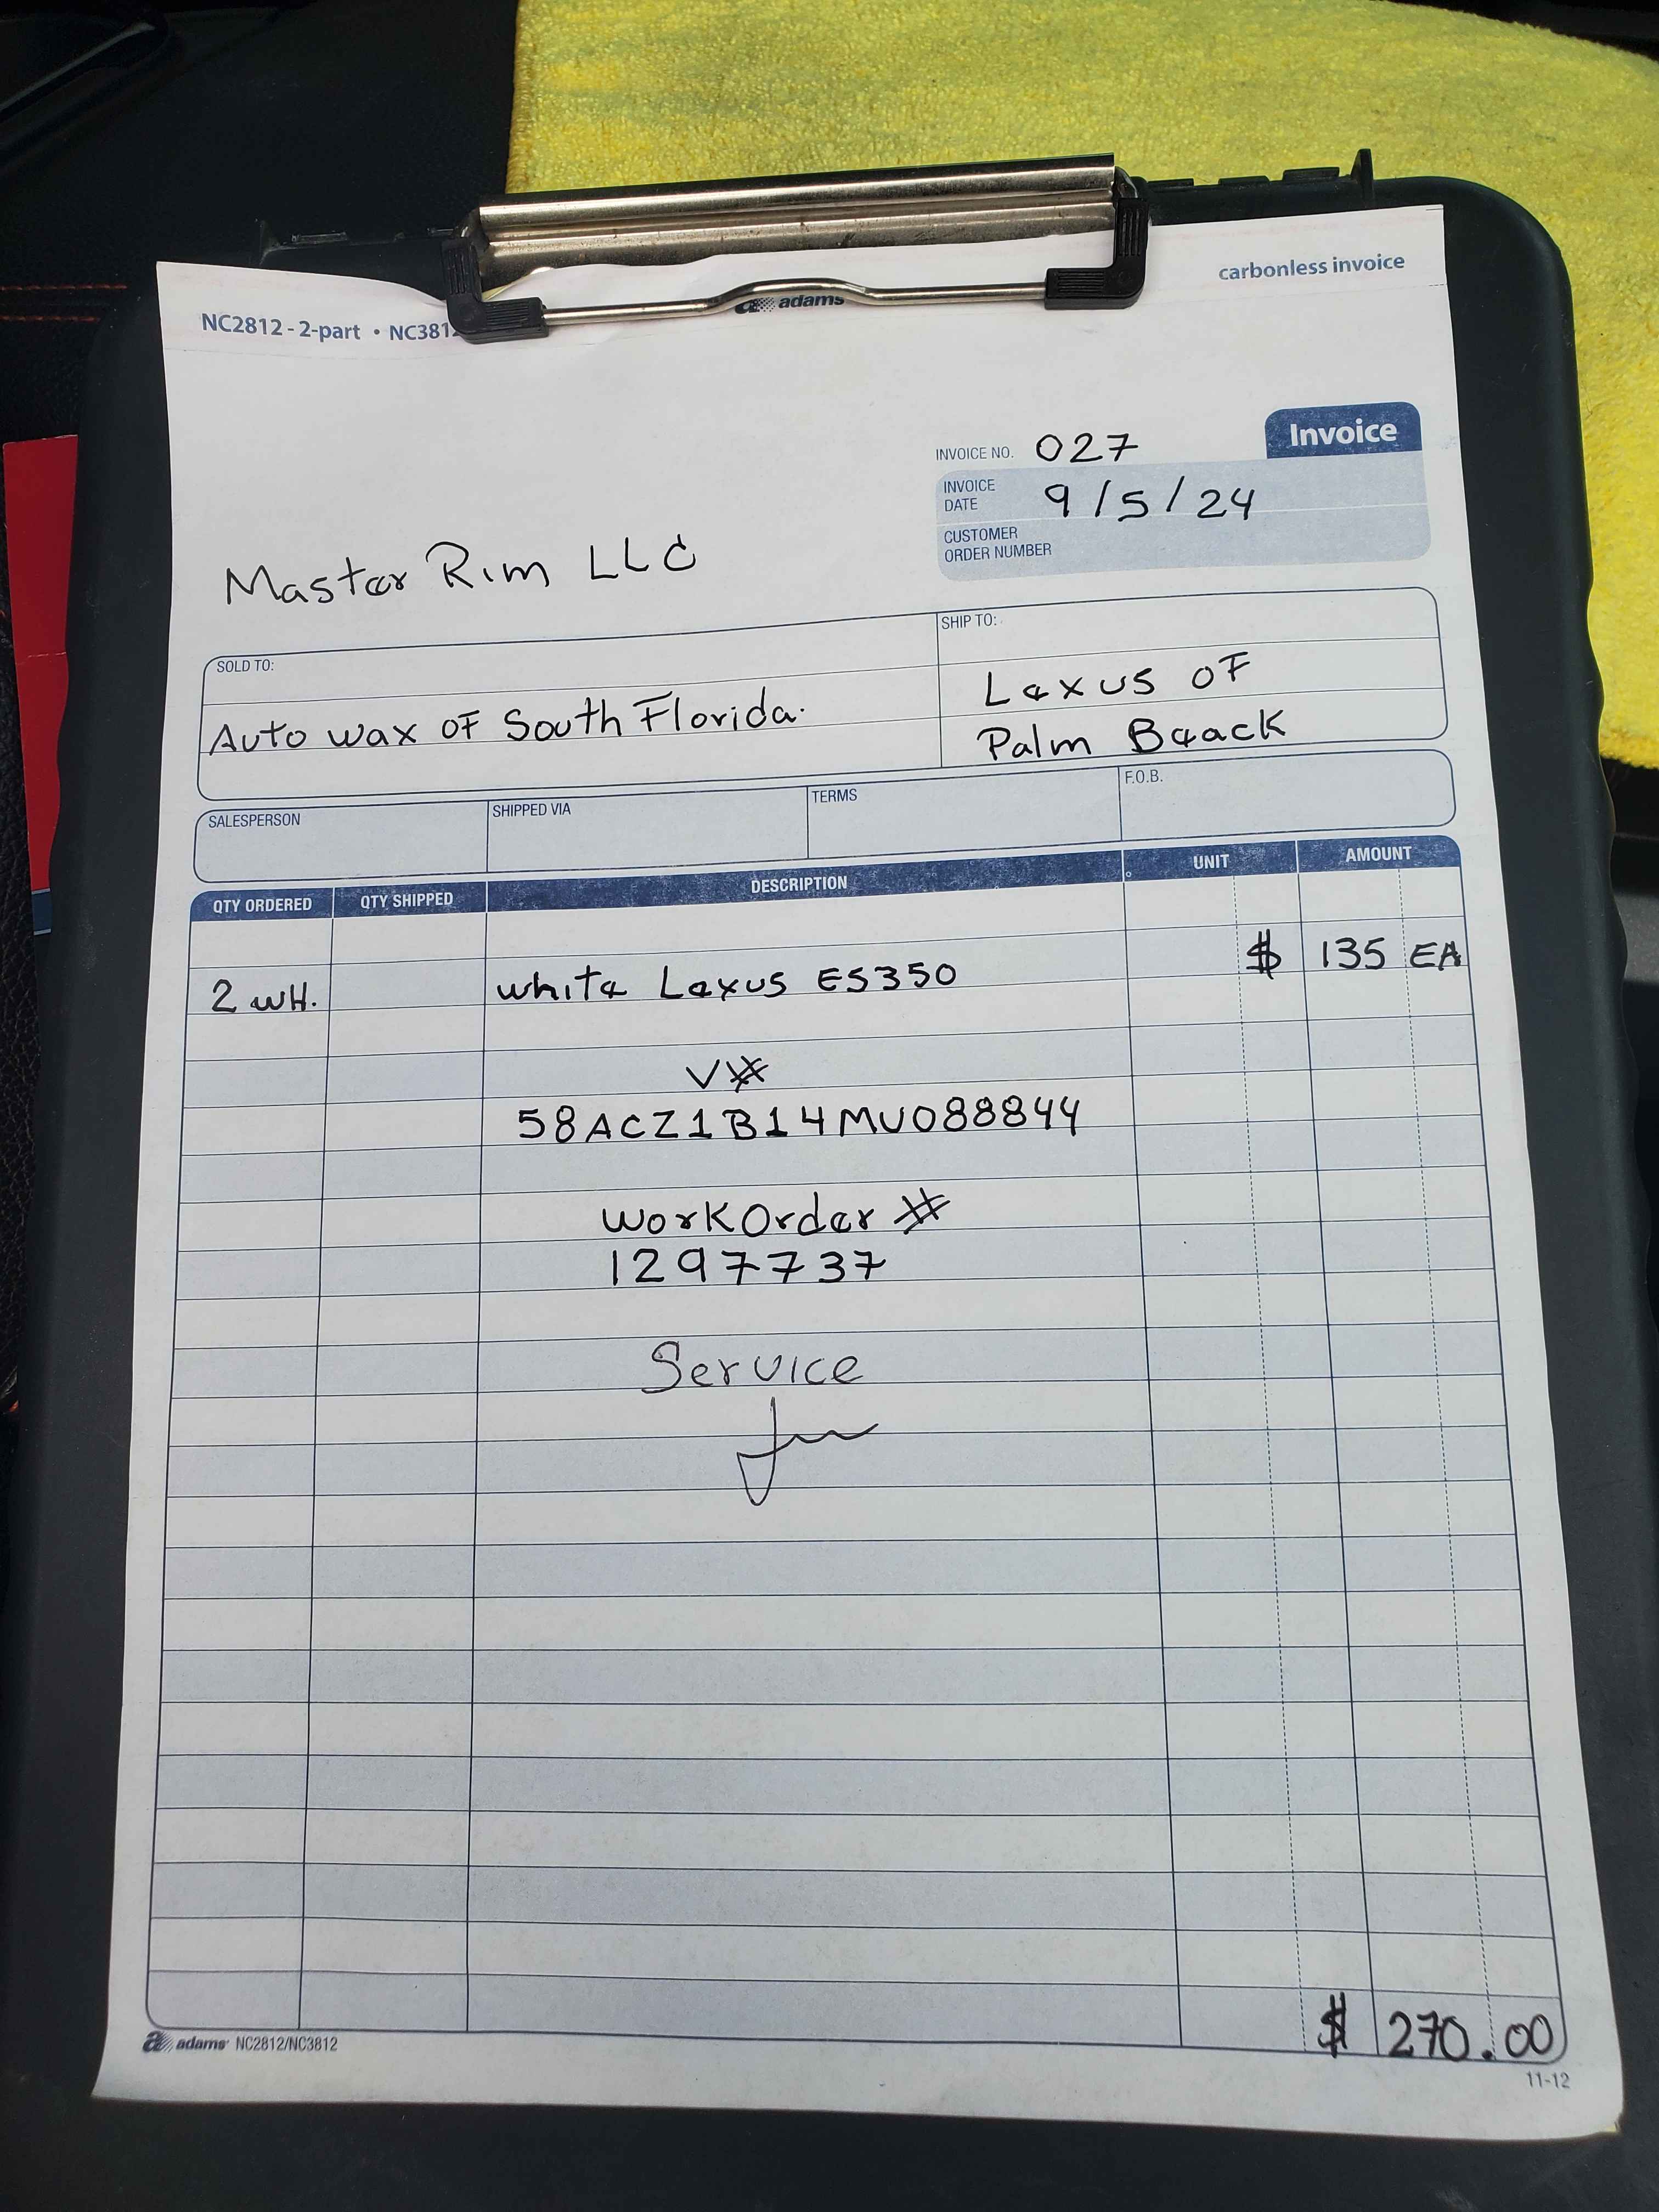 carbonless invoice
adams
NC2812 - 2-part • NC381
Invoice
INVOICE NO. 027
INVOICE DATE 9/5/24
CUSTOMER ORDER NUMBER
Master Rim LLC
SOLD TO:
Auto wax OF South Florida.
SHIP TO:
Lexus OF
Palm Beack
SALESPERSON SHIPPED VIA TERMS F.O.B.
QTY ORDERED QTY SHIPPED DESCRIPTION UNIT AMOUNT
2 WH. white Lexus ES350 $ 135 EA
V#
58ACZ1B14MU088844
WorkOrder #
1297737
Service
$ 270.00
adams NC2812/NC3812
11-12